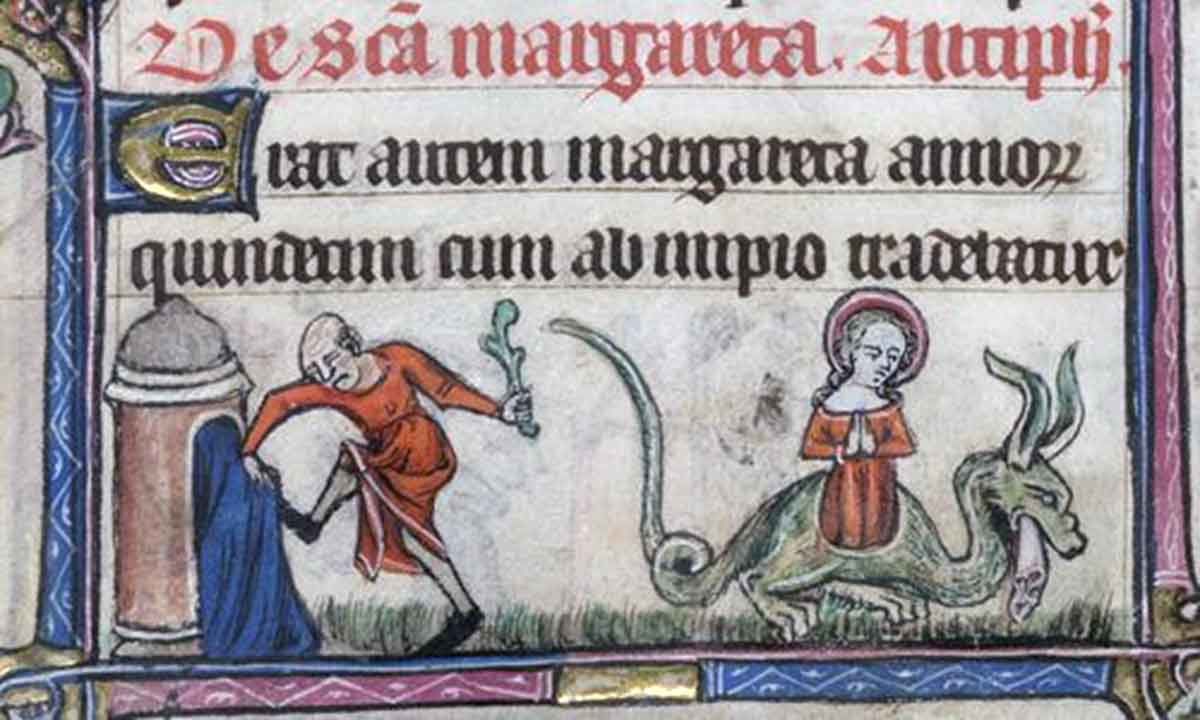 De scã margareta. Antiphˉ.
Erat autem margareta annoꝝ
quindecim cum ab impio traderetur